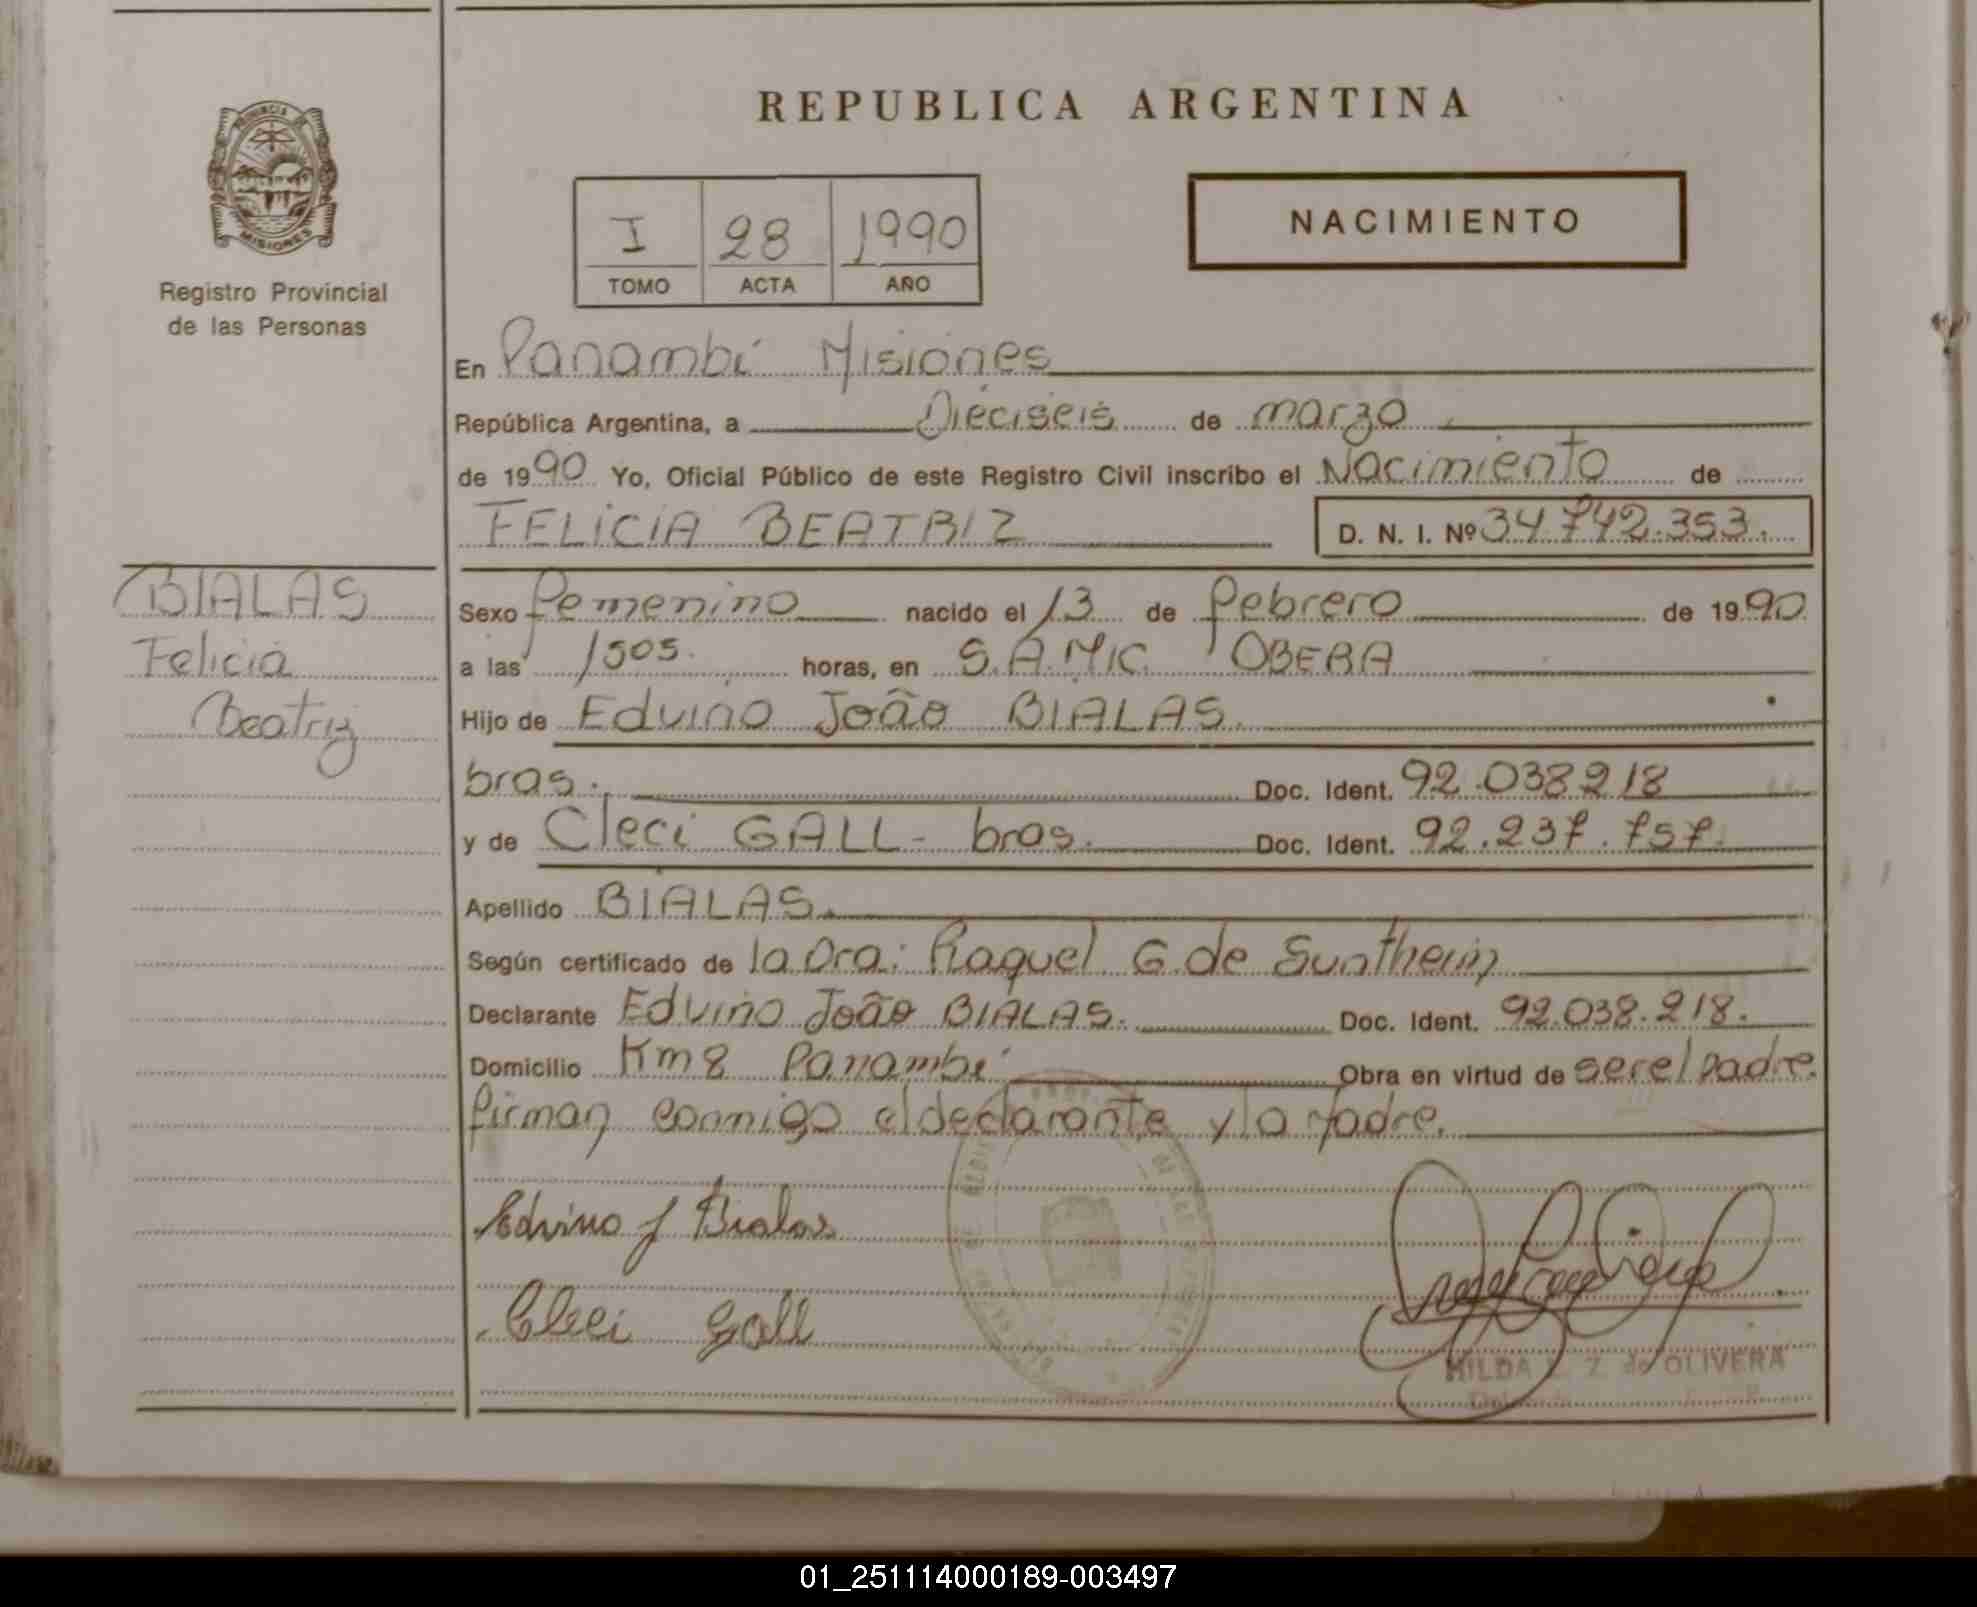 REPUBLICA ARGENTINA
PROVINCIA DE
MISIONES
Registro Provincial
de las Personas
I 28 1990
TOMO ACTA AÑO
NACIMIENTO
En Panambí Misiones
República Argentina, a Dieciseis de marzo
de 1990 Yo, Oficial Público de este Registro Civil inscribo el Nacimiento de
FELICIA BEATRIZ D. N. I. Nº 34.742.353.
BIALAS
Felicia
Beatriz
Sexo femenino nacido el 13 de febrero de 1990
a las 1505. horas, en S.A.M.I.C. OBERA
Hijo de Edvino João BIALAS.
bras. Doc. Ident. 92.038218
y de Cleci GALL - bras. Doc. Ident. 92.237.757.
Apellido BIALAS.
Según certificado de la Dra: Raquel G. de Sunthein
Declarante Edvino João BIALAS. Doc. Ident. 92.038.218.
Domicilio Km 8 Panambí Obra en virtud de ser el padre.
firman conmigo el declarante y la madre.
Edvino J Bialas
Cleci Gall
HILDA Z. de OLIVERA
01_251114000189-003497